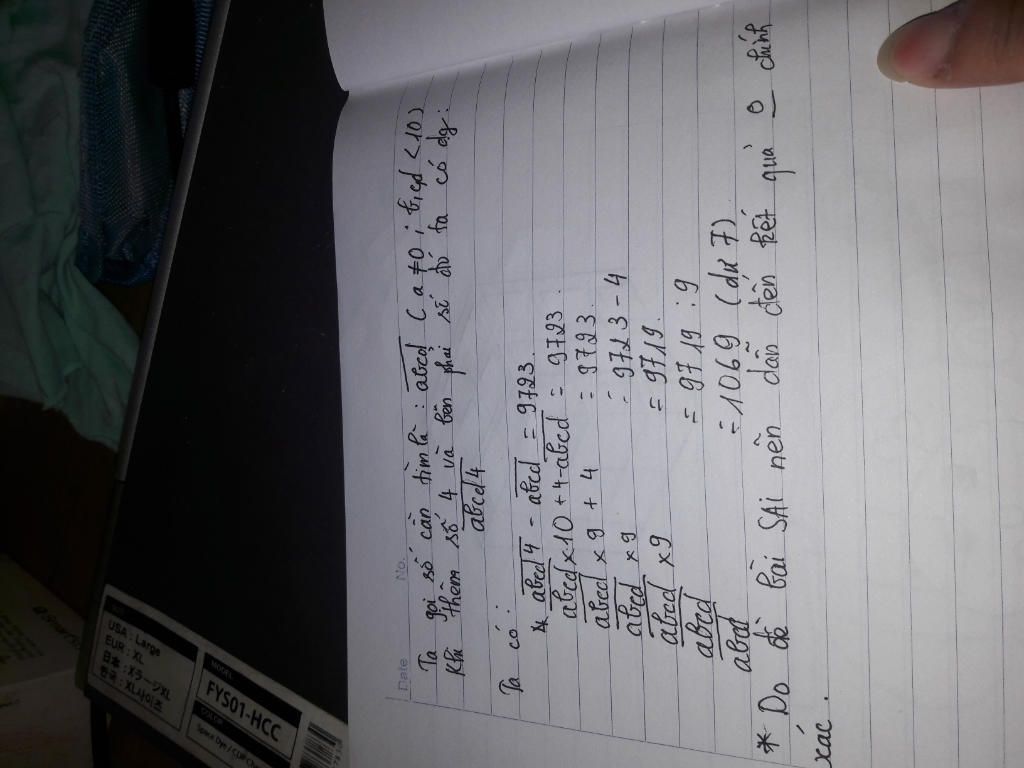 Date
No.
Ta gọi số cần tìm là : abcd ( a ≠ 0 ; b,c,d < 10 )
Khi thêm số 4 và bên phải số đó ta có dg :
abcd4
Ta có :
* abcd4 - abcd = 9723.
abcd x 10 + 4 - abcd = 9723.
abcd x 9 + 4 = 9723.
abcd x 9 = 9723 - 4
abcd x 9 = 9719.
abcd = 9719 : 9
abcd = 1069 (dư 7)
* Do đề bài SAI nên dẫn đến kết quả 0 chính
xác.
USA : Large
EUR : XL
日本 : XラージXL
한국 : XL사이즈
MODEL
FYS01-HCC
COLOR